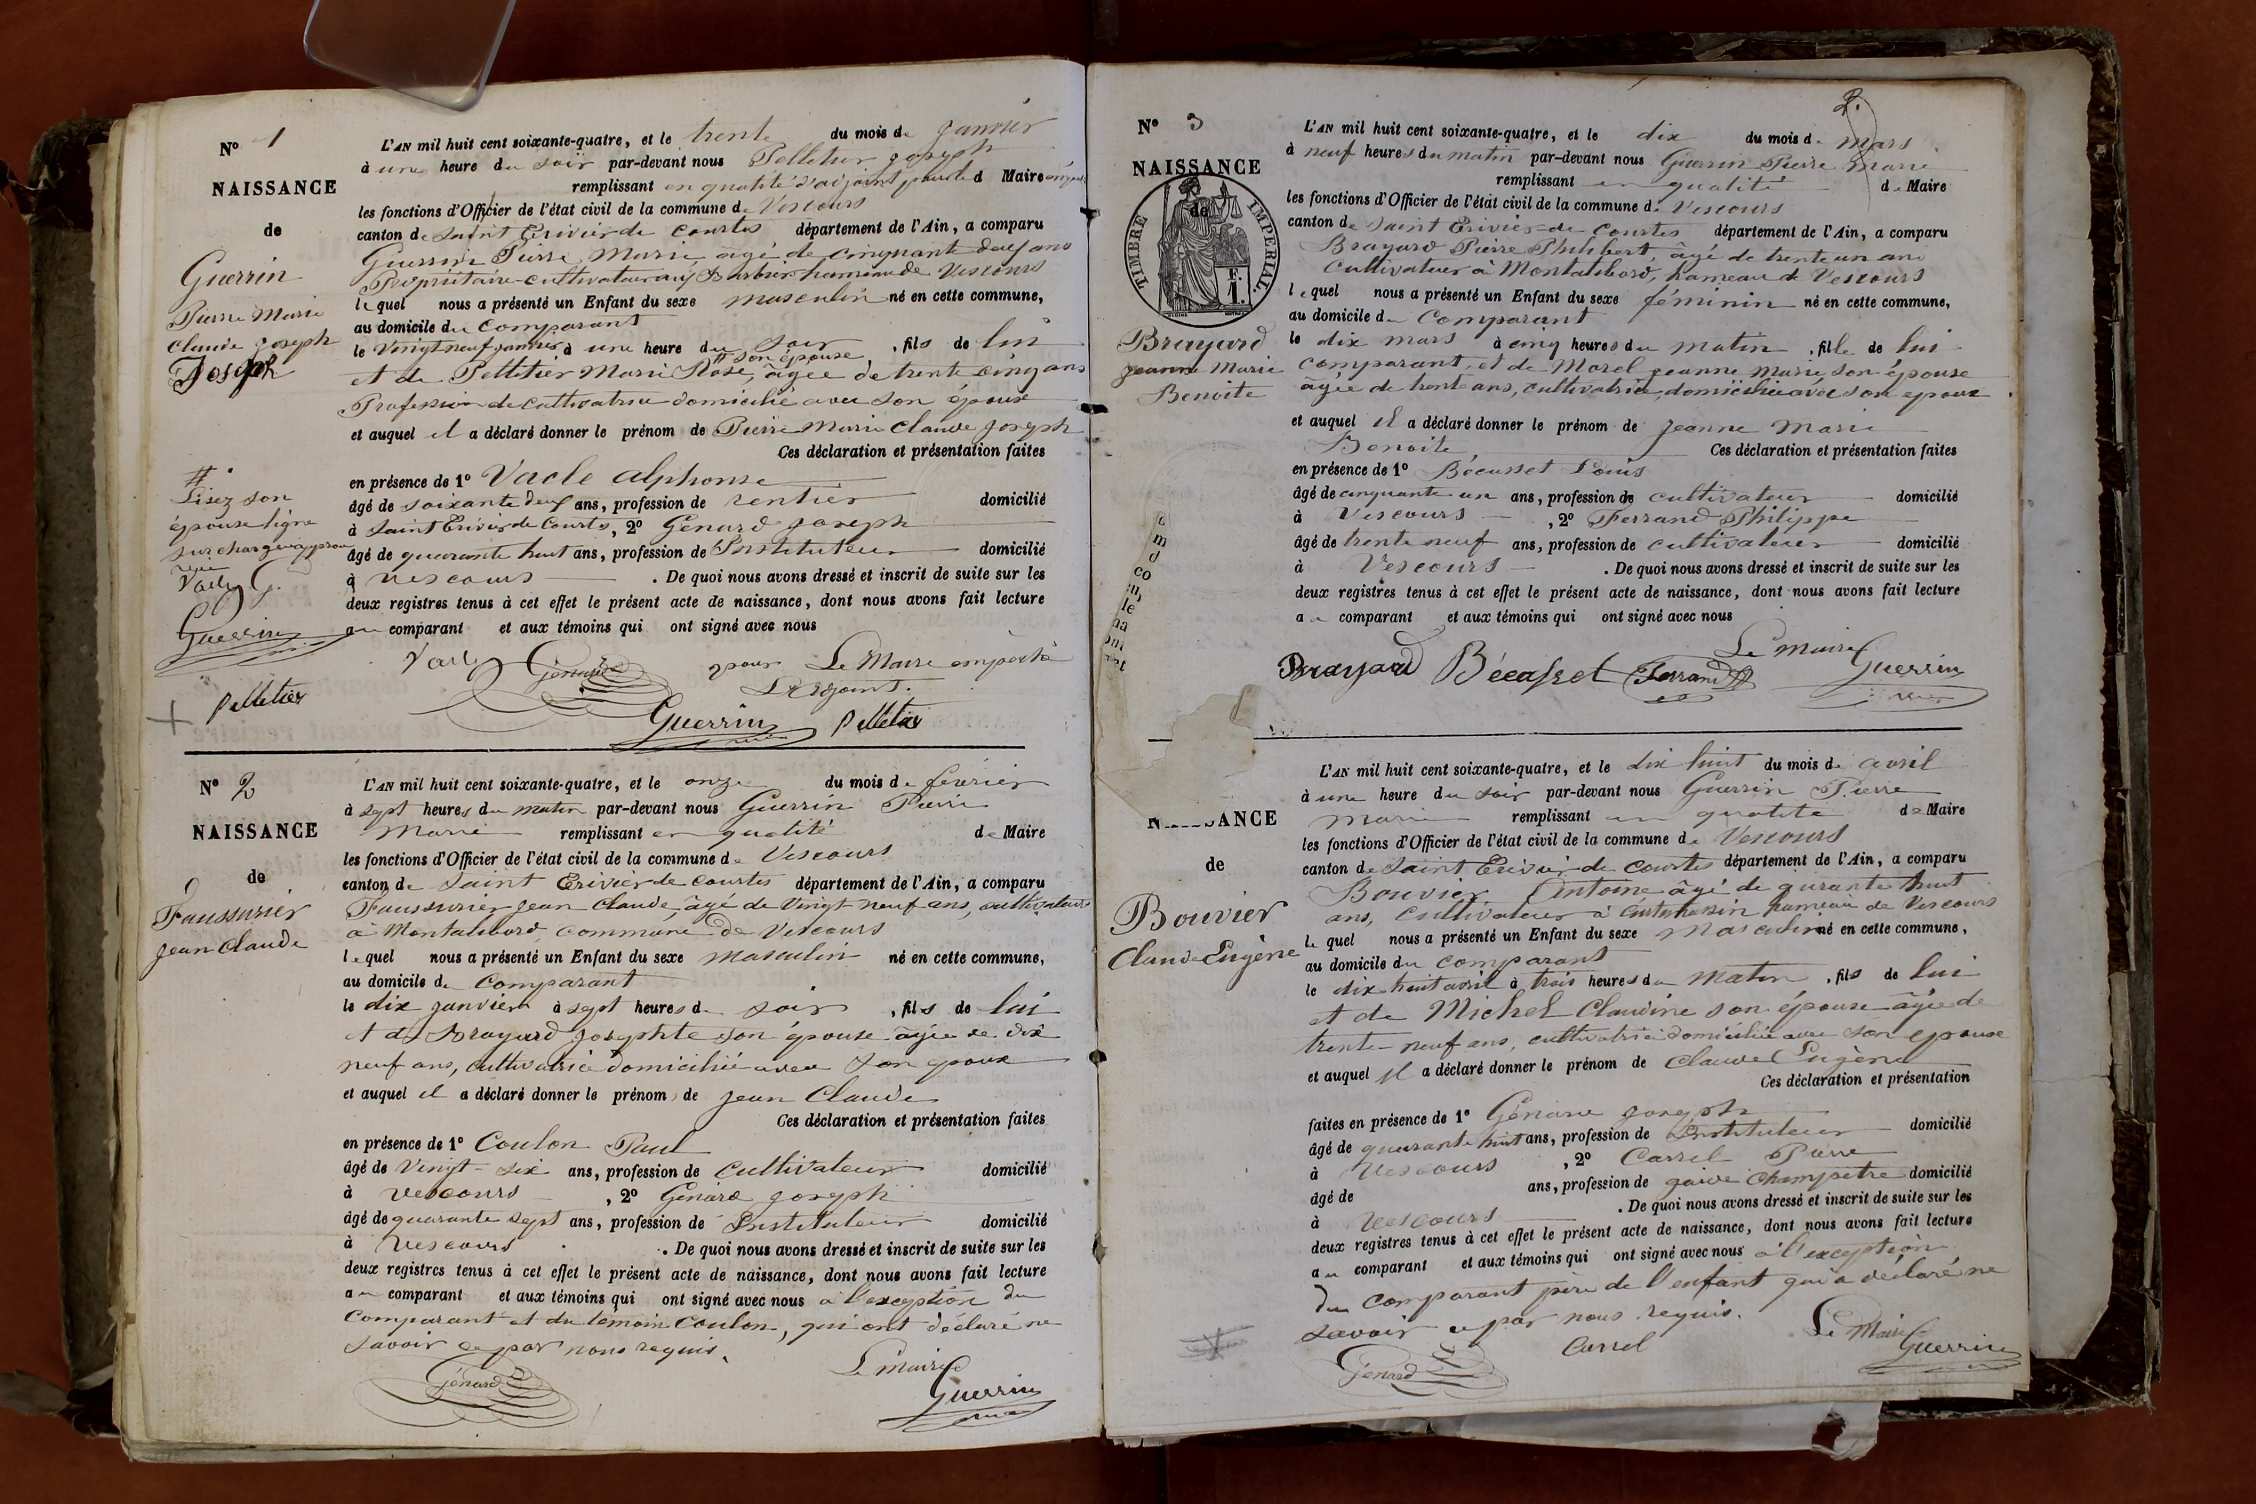 N° 1
NAISSANCE
de
Guerrin
Pierre Marie
Claude Joseph
Joseph
#
Lisez son
épouse ligne
surchargée
Vacle G.
Guerrin
Pelletier
L'AN mil huit cent soixante-quatre, et le trente du mois de Janvier
à une heure du soir par-devant nous Pelletier Joseph
remplissant en qualité d'adjoint pour le d Maire
les fonctions d'Officier de l'état civil de la commune de Vescours
canton de Saint Trivier de Courtes département de l'Ain, a comparu
Guerrin Pierre Marie, agé de cinquante deux ans
Propriétaire-cultivateur hameau de Vescours
lequel nous a présenté un Enfant du sexe masculin né en cette commune,
au domicile du comparant
le Vingt neuf janvier à une heure du soir, fils de lui
# son épouse
et de Pelletier Marie Rose, âgée de trente cinq ans
Profession de cultivatrice domicilié avec son époux
et auquel il a déclaré donner le prénom de Pierre Marie Claude Joseph
Ces déclaration et présentation faites
en présence de 1° Vacle Alphonse
âgé de soixante deux ans, profession de rentier domicilié
à Saint Trivier de Courtes, 2° Génard Joseph
âgé de quarante huit ans, profession de Instituteur domicilié
à Vescours . De quoi nous avons dressé et inscrit de suite sur les
deux registres tenus à cet effet le présent acte de naissance, dont nous avons fait lecture
au comparant et aux témoins qui ont signé avec nous
Vacle Génard pour Le Maire empêché
L'adjoint.
Guerrin Pelletier
N° 2
NAISSANCE
de
Faussurier
Jean Claude
L'AN mil huit cent soixante-quatre, et le onze du mois de février
à sept heures du matin par-devant nous Guerrin Pierre
Marie remplissant en qualité de Maire
les fonctions d'Officier de l'état civil de la commune de Vescours
canton de Saint Trivier de Courtes département de l'Ain, a comparu
Faussurier Jean Claude, âgé de Vingt-neuf ans, cultivateur
à Montalibord commune de Vescours
lequel nous a présenté un Enfant du sexe masculin né en cette commune,
au domicile du comparant
le dix janvier à sept heures du soir, fils de lui
et de Brayard Josephte son épouse âgée de dix
neuf ans, cultivatrice domiciliée avec son époux
et auquel il a déclaré donner le prénom de Jean Claude
Ces déclaration et présentation faites
en présence de 1° Coulon Paul
âgé de Vingt-six ans, profession de Cultivateur domicilié
à Vescours, 2° Génard Joseph
âgé de quarante sept ans, profession de Instituteur domicilié
à Vescours . De quoi nous avons dressé et inscrit de suite sur les
deux registres tenus à cet effet le présent acte de naissance, dont nous avons fait lecture
au comparant et aux témoins qui ont signé avec nous à l'exception du
comparant et du témoin Coulon, qui ont déclaré ne
savoir ce par nous requis.
Génard Le maire
Guerrin
2.
N° 3
NAISSANCE
de
TIMBRE IMPERIAL
F.
1.
Brayard
Jeanne Marie
Benoite
L'AN mil huit cent soixante-quatre, et le dix du mois de mars
à neuf heures du matin par-devant nous Guerrin Pierre Marie
remplissant en qualité de Maire
les fonctions d'Officier de l'état civil de la commune de Vescours
canton de Saint Trivier de Courtes département de l'Ain, a comparu
Brayard Pierre Philibert, âgé de trente un ans
Cultivateur à Montalibord, hameau de Vescours
lequel nous a présenté un Enfant du sexe féminin né en cette commune,
au domicile du comparant
le dix mars à cinq heures du matin, fille de lui
comparant, et de Morel Jeanne Marie, son épouse
âgée de trente ans, cultivatrice, domiciliée avec son époux
et auquel il a déclaré donner le prénom de Jeanne Marie
Benoite Ces déclaration et présentation faites
en présence de 1° Bécasset Louis
âgé de cinquante un ans, profession de cultivateur domicilié
à Vescours, 2° Ferrand Philippe
âgé de trente neuf ans, profession de cultivateur domicilié
à Vescours . De quoi nous avons dressé et inscrit de suite sur les
deux registres tenus à cet effet le présent acte de naissance, dont nous avons fait lecture
au comparant et aux témoins qui ont signé avec nous
Le maire
Brayard Bécasset Ferrand Guerrin
NAISSANCE
de
Bouvier
Claude Eugène
L'AN mil huit cent soixante-quatre, et le dix huit du mois de avril
à une heure du soir par-devant nous Guerrin Pierre
Marie remplissant en qualité de Maire
les fonctions d'Officier de l'état civil de la commune de Vescours
canton de Saint Trivier de Courtes département de l'Ain, a comparu
Bouvier Antoine âgé de quarante huit
ans, cultivateur à hameau de Vescours
lequel nous a présenté un Enfant du sexe Masculin né en cette commune,
au domicile du comparant
le dix-huit avril à trois heures du matin, fils de lui
et de Michel Claudine son épouse âgée de
trente-neuf ans, cultivatrice domiciliée avec son époux
et auquel il a déclaré donner le prénom de Claude Eugène
Ces déclaration et présentation
faites en présence de 1° Génard Joseph
âgé de quarante huit ans, profession de Instituteur domicilié
à Vescours, 2° Carrel Pierre
âgé de ans, profession de garde champêtre domicilié
à Vescours . De quoi nous avons dressé et inscrit de suite sur les
deux registres tenus à cet effet le présent acte de naissance, dont nous avons fait lecture
au comparant et aux témoins qui ont signé avec nous à l'exception
du comparant père de l'enfant qui a déclaré ne
savoir ce par nous requis.
Génard Carrel Le Maire
Guerrin